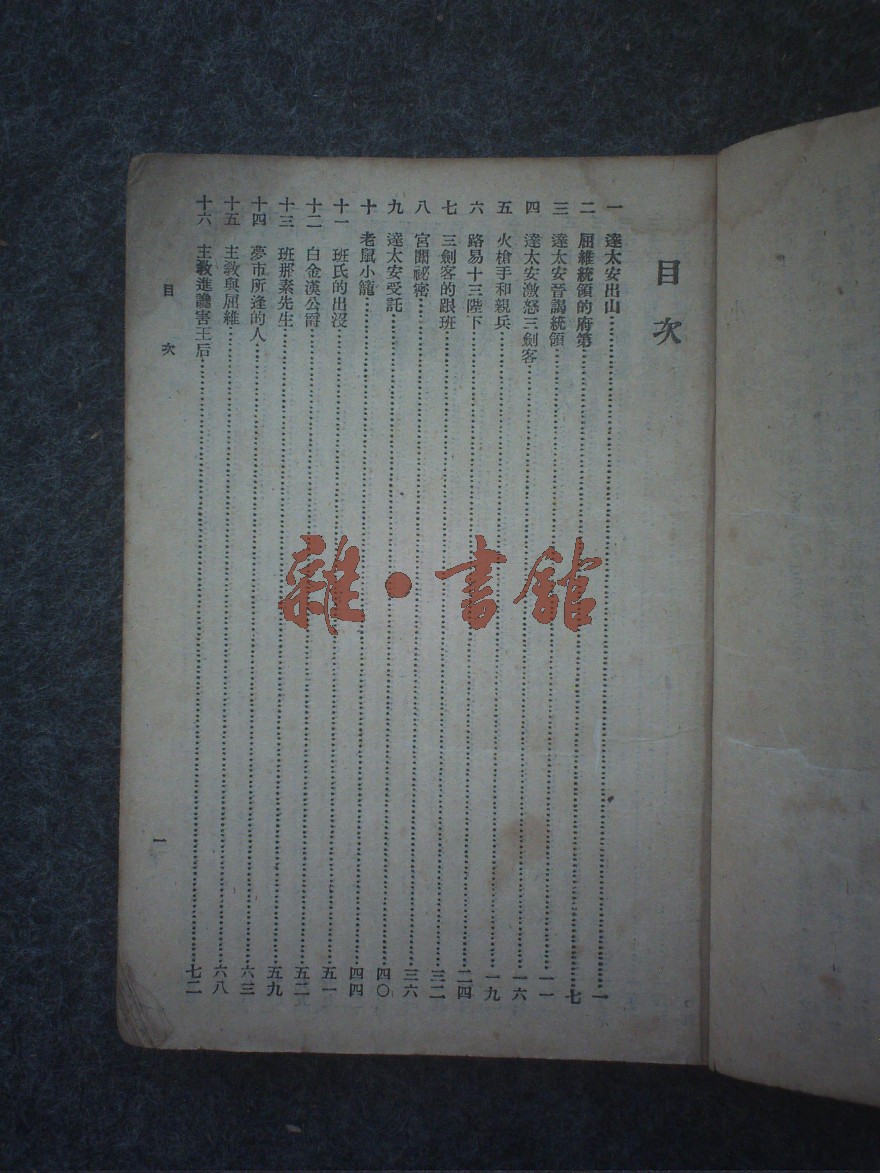 目次
一 達太安出山 一
二 屈維統領的府第 七
三 達太安晉謁統領 一一
四 達太安激怒三劍客 一六
五 火槍手和親兵 一九
六 路易十三陛下 二四
七 三劍客的跟班 三二
八 宮闈祕密 三六
九 達太安受託 四〇
十 老鼠小籠 四四
十一 班氏的出沒 五一
十二 白金漢公爵 五二
十三 班那素先生 五九
十四 夢市所逢的人 六三
十五 主教與屈維 六八
十六 主教進讒害王后 七二
目次
一
雜·書館